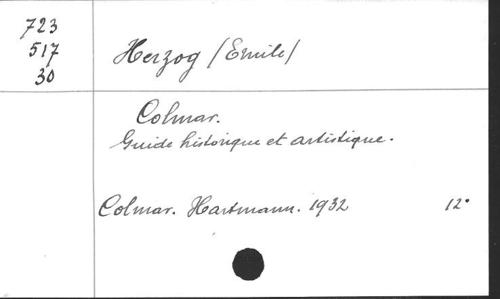 723
517
30
Herzog (Emile)
Colmar.
Guide historique et artistique.
Colmar. Hartmann. 1932 12°